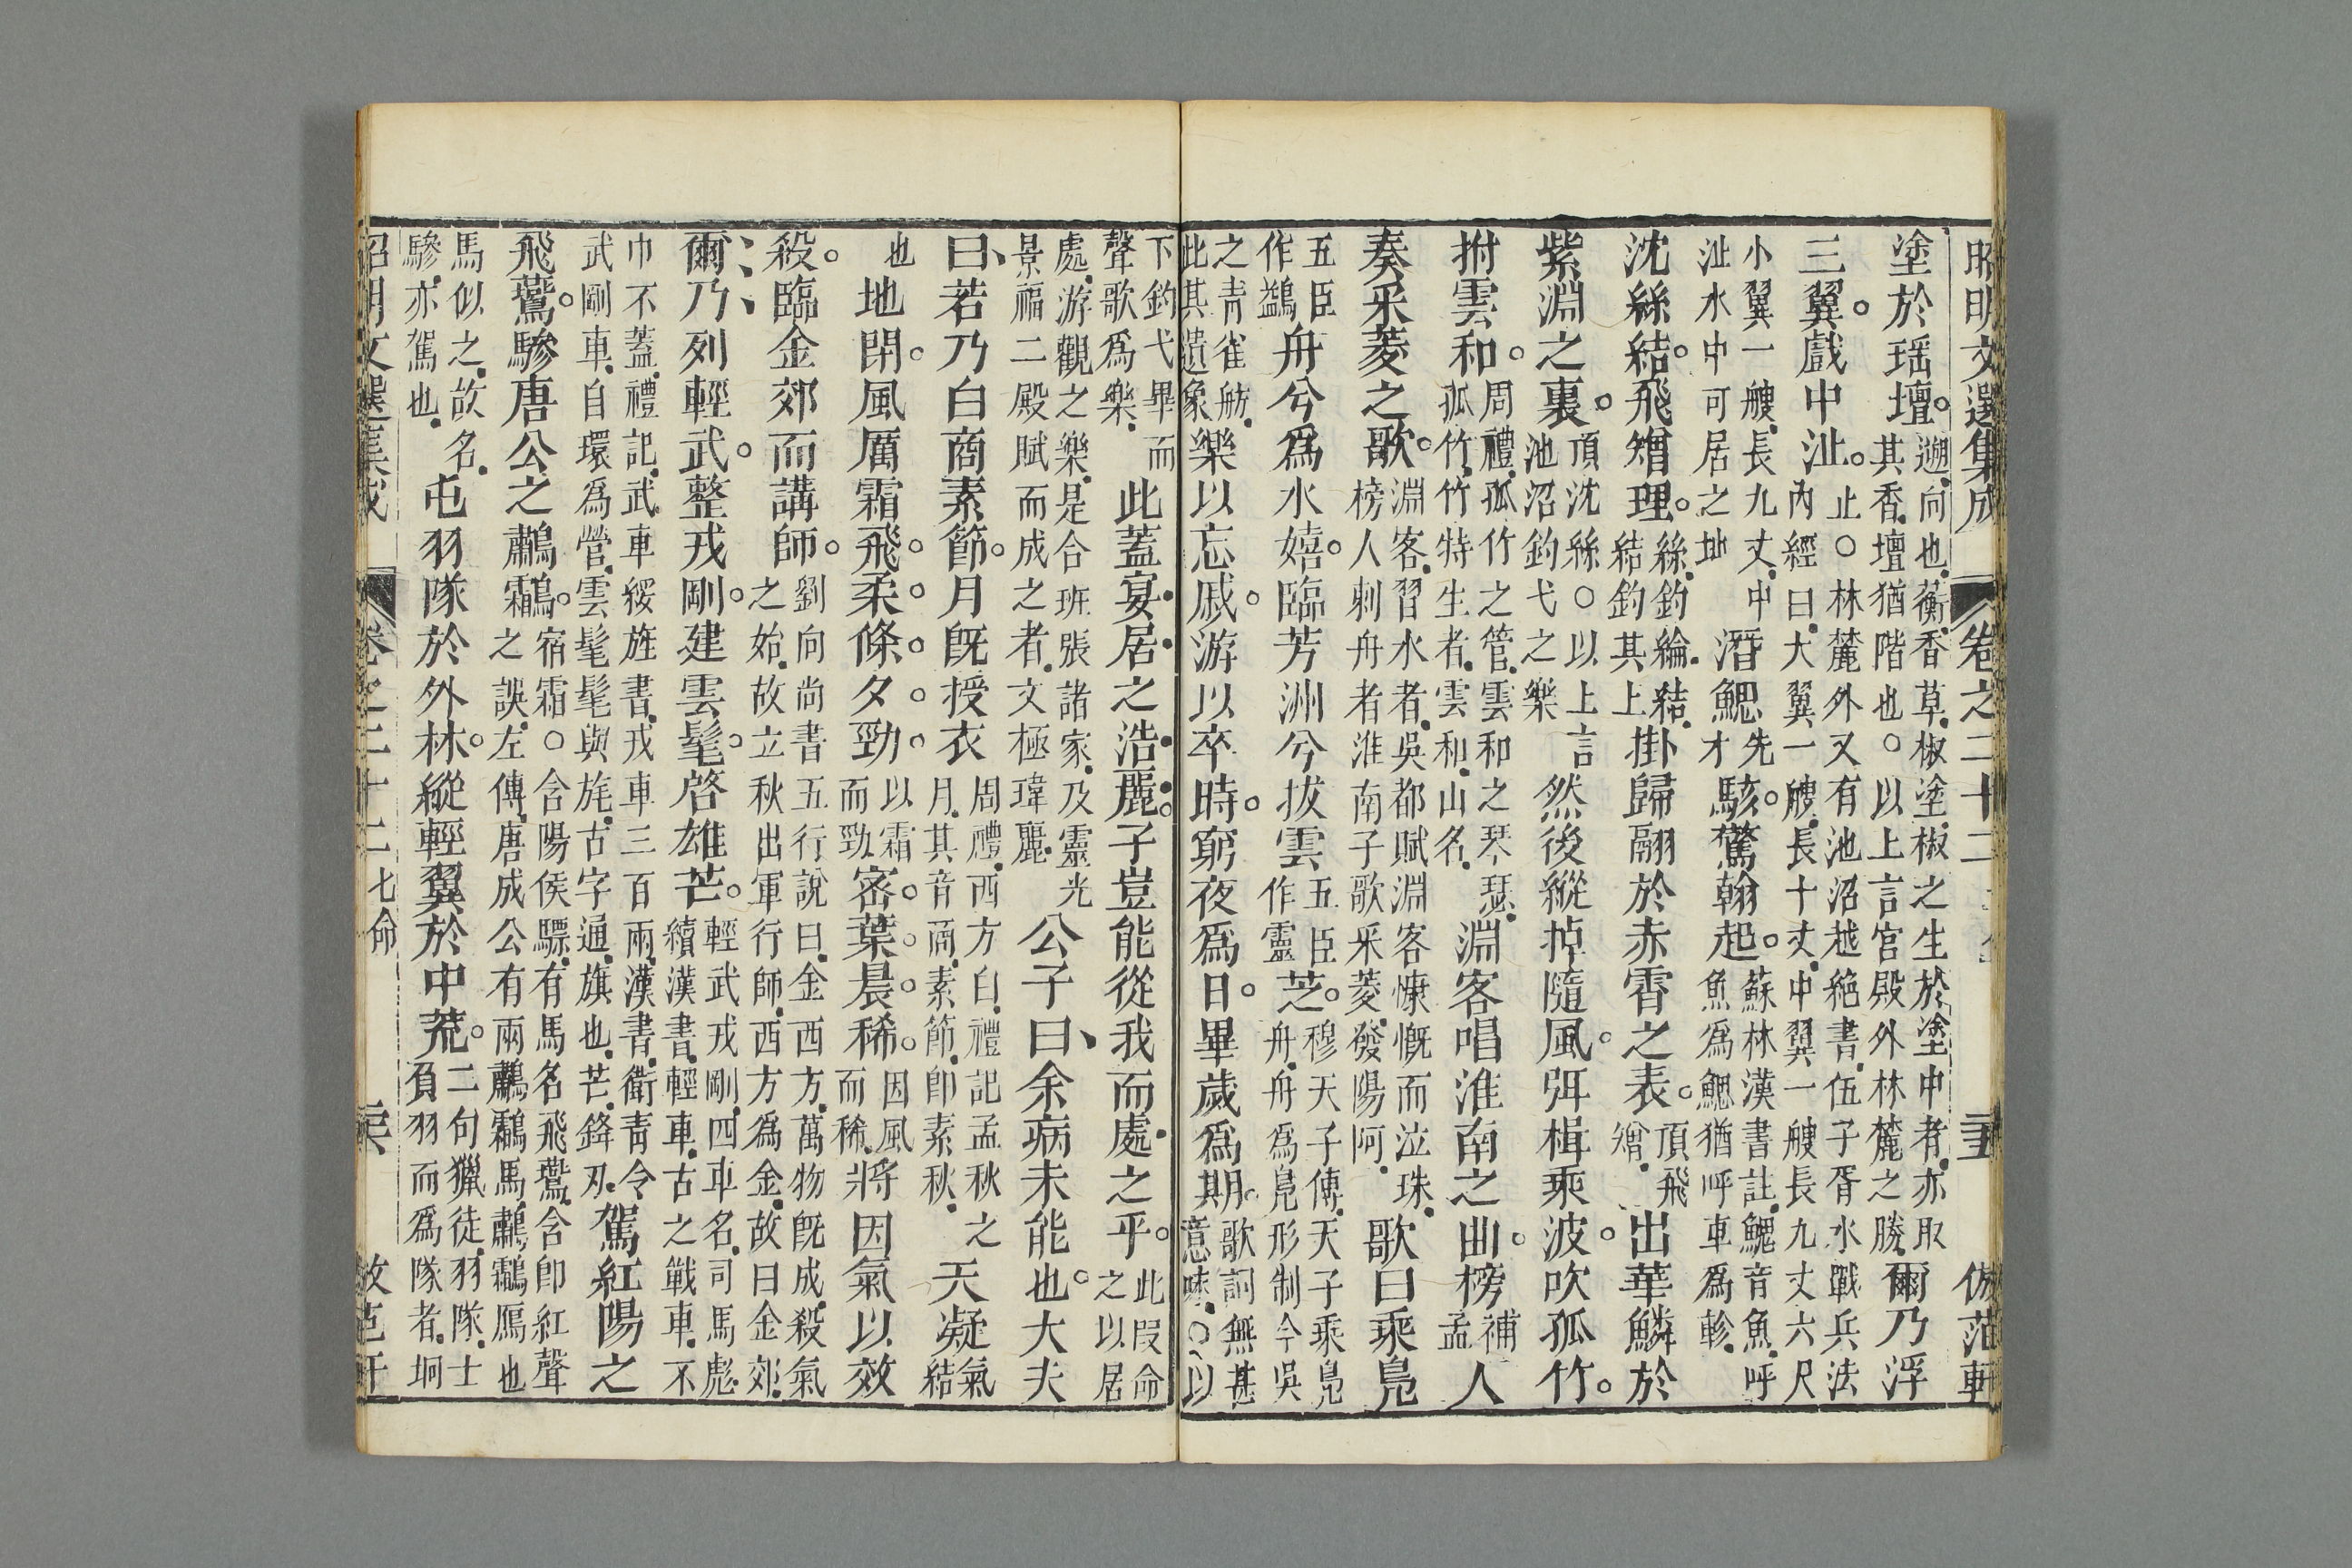 昭明文選集成 卷之二十二 倣范軒
塗於瑶壇。遡向也蘅香草椒塗椒之生於塗中者亦取其香壇猶階也○以上言宮殿外林麓之勝爾乃浮
三翼。戲中沚。止○林麓外又有池沼越絕書伍子胥水戰兵法內經曰大翼一艘長十丈中翼一艘長九丈六尺
小翼一艘長九丈中沚水中可居之地潛鰓先才駭。驚翰起。蘇林漢書註鰓音魚呼魚爲鰓猶呼車爲軫
沈絲結。飛矰理。絲釣綸結結釣其上掛歸翮於赤霄之表。頂飛矰出華鱗於
紫淵之裏。頂沈絲○以上言池沼釣弋之樂然後縱棹隨風。弭楫乘波。吹孤竹。
拊雲和。周禮孤竹之管雲和之琴瑟孤竹竹特生者雲和山名淵客唱淮南之曲。榜補孟人
奏采菱之歌。淵客習水者吳都賦淵客慷慨而泣珠榜人刺舟者淮南子歌采菱發陽阿歌曰乘鳧
五臣作鷁舟兮爲水嬉。臨芳洲兮拔雲五臣作靈芝。穆天子傳天子乘鳧舟舟爲鳧形制今吳
之青雀舫此其遺象樂以忘戚。游以卒時。窮夜爲日。畢歲爲期。歌詞無甚意味○以
下釣弋畢而聲歌爲樂此蓋宴居之浩麗。子豈能從我而處之乎。此段命之以居
處游觀之樂是合班張諸家及靈光景福二殿賦而成之者文極瑋麗公子曰余病未能也。大夫
曰若乃白商素節。月既授衣周禮西方白禮記孟秋之月其音商素節即素秋天凝氣結
也地閉。風厲霜飛。柔條夕勁。以霜而勁密葉晨稀。因風而稀將因氣以效
殺。臨金郊而講師。劉向尚書五行說曰金西方萬物既成殺氣之始故立秋出軍行師西方爲金故曰金郊
爾乃列輕武。整戎剛。建雲髦。啓雄芒。輕武戎剛四車名司馬彪續漢書輕車古之戰車不
巾不蓋禮記武車綏旌書戎車三百兩漢書衛青令武剛車自環爲營雲髦髦與旄古字通旗也芒鋒刃駕紅陽之
飛鷰。驂唐公之驌驦。宿霜○含陽侯驃有馬名飛鷰含即紅聲之誤左傳唐成公有兩驌驦馬驌驦鴈也
馬似之故名驂亦駕也屯羽隊於外林。縱輕翼於中荒。二句獵徒羽隊士負羽而爲隊者坰
昭明文選集成 卷之二十二七命 倣范軒